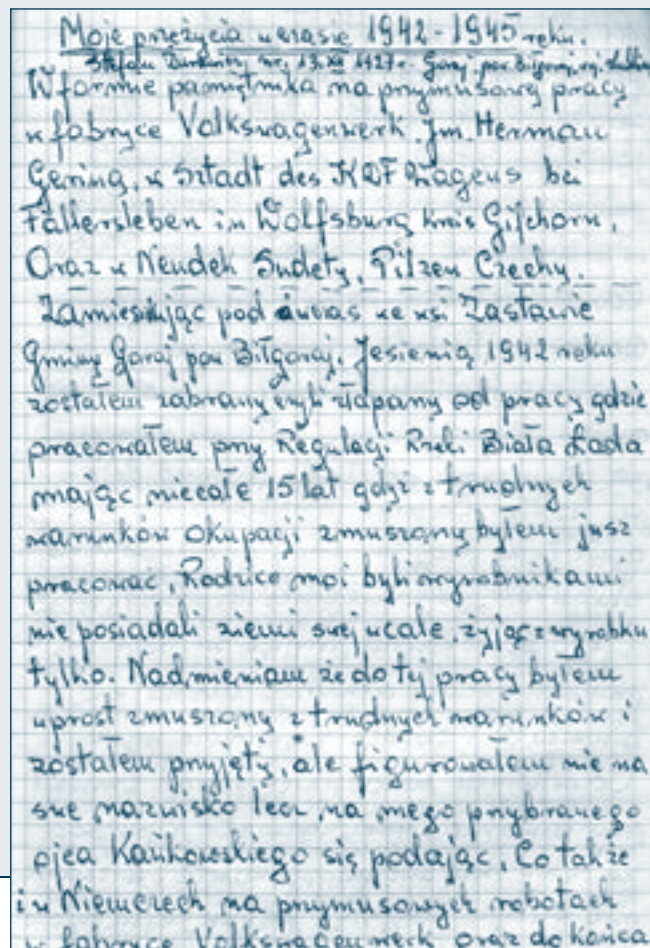 Moje przeżycia w czasie 1942-1945 roku.
Stefan ur. 13.XII 1927 r. Goraj pow. Biłgoraj, woj. Lublin
W formie pamiętnika na przymusowej pracy
w fabryce Volkswagenwerk. Jm. Herman
Gering, w Sztadt des KDF Wagens bei
Fallersleben in Wolfsburg kreis Gifhorn,
Oraz w Neudek Sudety, Pilzen Czechy.
Zamieszkując pod we wsi Zastawie
Gminy Goraj pow Biłgoraj. Jesienią 1942 roku
zostałem zabrany czyli złapany od pracy gdzie
pracowałem przy Regulacji Rzeki Biała Łada
mając niecałe 15 lat gdyż z trudnych
warunków okupacji zmuszony byłem jusz
pracować, Rodzice moi byli wyrobnikami
nie posiadali ziemi swej wcale, żyjąc z wyrobku
tylko. Nadmieniam że do tej pracy byłem
wprost zmuszony z trudnych warunków i
zostałem przyjęty, ale figurowałem nie na
swe nazwisko lecz na mego przybranego
ojca Kańkowskiego się podając, Co także
i w Niemczech na przymusowych robotach
w fabryce Volkswagenwerk oraz do końca